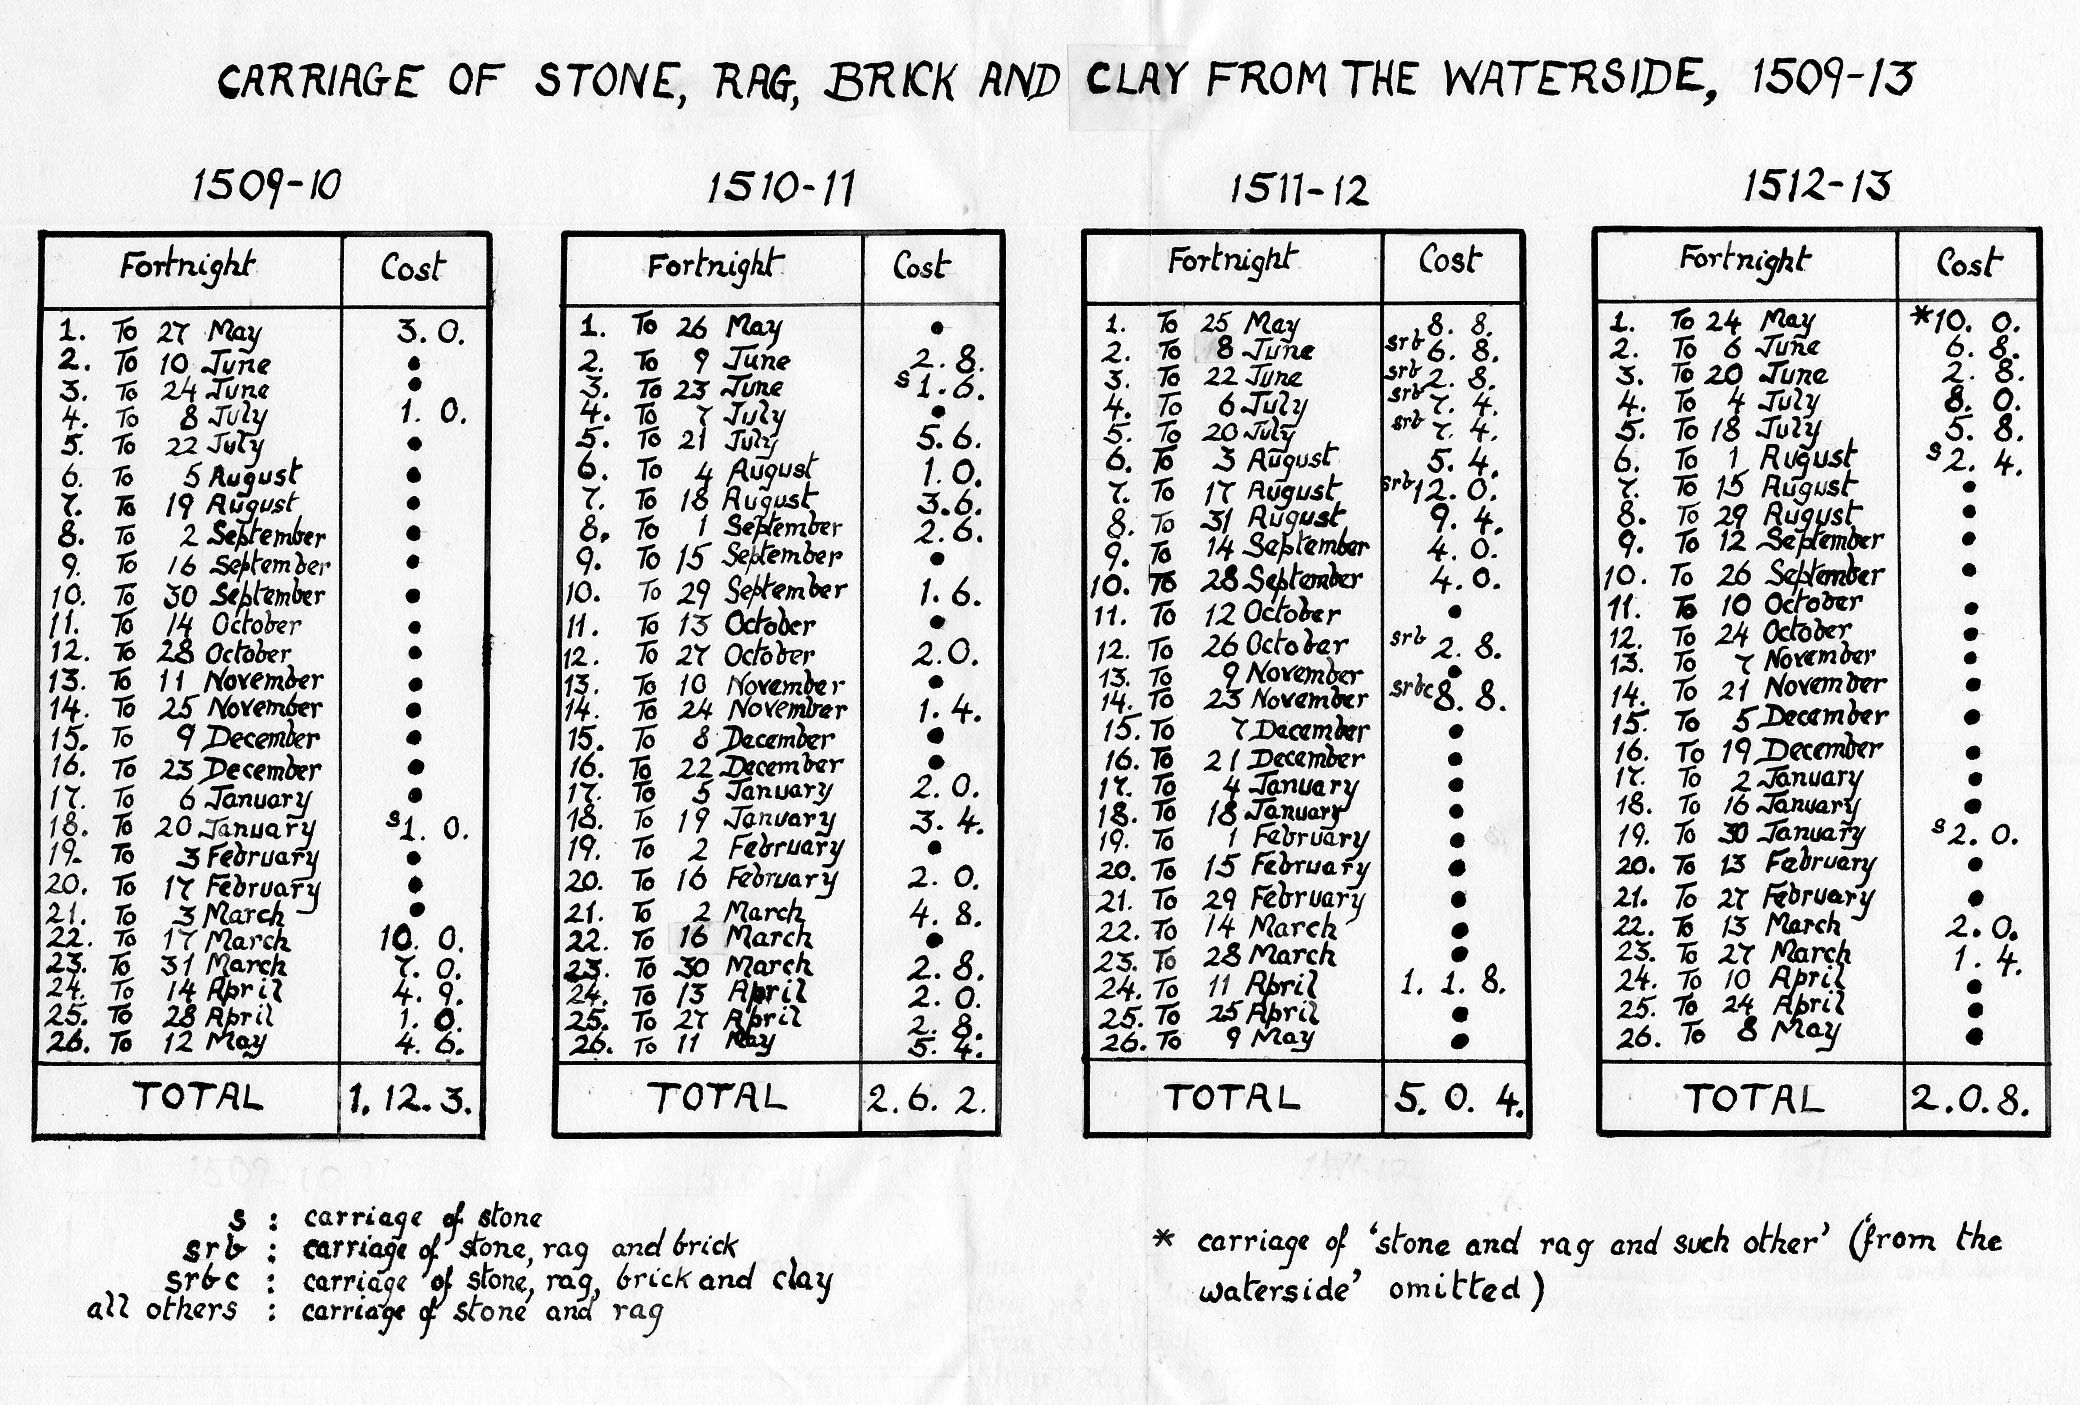 CARRIAGE OF STONE, RAG, BRICK AND CLAY FROM THE WATERSIDE, 1509-13
1509-10
Fortnight Cost
1. To 27 May 3. 0.
2. To 10 June •
3. To 24 June •
4. To 8 July 1. 0.
5. To 22 July •
6. To 5 August •
7. To 19 August •
8. To 2 September •
9. To 16 September •
10. To 30 September •
11. To 14 October •
12. To 28 October •
13. To 11 November •
14. To 25 November •
15. To 9 December •
16. To 23 December •
17. To 6 January •
18. To 20 January s1. 0.
19. To 3 February •
20. To 17 February •
21. To 3 March •
22. To 17 March 10. 0.
23. To 31 March 7. 0.
24. To 14 April 4. 9.
25. To 28 April 1. 0.
26. To 12 May 4. 6.
TOTAL 1. 12. 3.
1510-11
Fortnight Cost
1. To 26 May •
2. To 9 June 2. 8.
3. To 23 June s1. 6.
4. To 7 July •
5. To 21 July 5. 6.
6. To 4 August 1. 0.
7. To 18 August 3. 6.
8. To 1 September 2. 6.
9. To 15 September •
10. To 29 September 1. 6.
11. To 13 October •
12. To 27 October 2. 0.
13. To 10 November •
14. To 24 November 1. 4.
15. To 8 December •
16. To 22 December •
17. To 5 January 2. 0.
18. To 19 January 3. 4.
19. To 2 February •
20. To 16 February 2. 0.
21. To 2 March 4. 8.
22. To 16 March •
23. To 30 March 2. 8.
24. To 13 April 2. 0.
25. To 27 April 2. 8.
26. To 11 May 5. 4.
TOTAL 2. 6. 2.
1511-12
Fortnight Cost
1. To 25 May 8. 8.
2. To 8 June srb6. 8.
3. To 22 June srb2. 8.
4. To 6 July srb7. 4.
5. To 20 July srb7. 4.
6. To 3 August 5. 4.
7. To 17 August srb12. 0.
8. To 31 August 9. 4.
9. To 14 September 4. 0.
10. To 28 September 4. 0.
11. To 12 October •
12. To 26 October srb 2. 8.
13. To 9 November •
14. To 23 November srbc8. 8.
15. To 7 December •
16. To 21 December •
17. To 4 January •
18. To 18 January •
19. To 1 February •
20. To 15 February •
21. To 29 February •
22. To 14 March •
23. To 28 March •
24. To 11 April 1. 1. 8.
25. To 25 April •
26. To 9 May •
TOTAL 5. 0. 4.
1512-13
Fortnight Cost
1. To 24 May *10. 0.
2. To 6 June 6. 8.
3. To 20 June 2. 8.
4. To 4 July 8. 0.
5. To 18 July 5. 8.
6. To 1 August s2. 4.
7. To 15 August •
8. To 29 August •
9. To 12 September •
10. To 26 September •
11. To 10 October •
12. To 24 October •
13. To 7 November •
14. To 21 November •
15. To 5 December •
16. To 19 December •
17. To 2 January •
18. To 16 January •
19. To 30 January s2. 0.
20. To 13 February •
21. To 27 February •
22. To 13 March 2. 0.
23. To 27 March 1. 4.
24. To 10 April •
25. To 24 April •
26. To 8 May •
TOTAL 2. 0. 8.
s : carriage of stone
srb : carriage of stone, rag and brick
srbc : carriage of stone, rag, brick and clay
all others : carriage of stone and rag
* carriage of 'stone and rag and such other' ('from the
waterside' omitted)